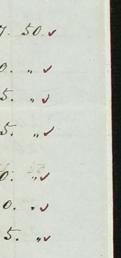 7. 50. ✓
0. " ✓
5. " ✓
5. " ✓
0. " ✓
0. " ✓
5. " ✓